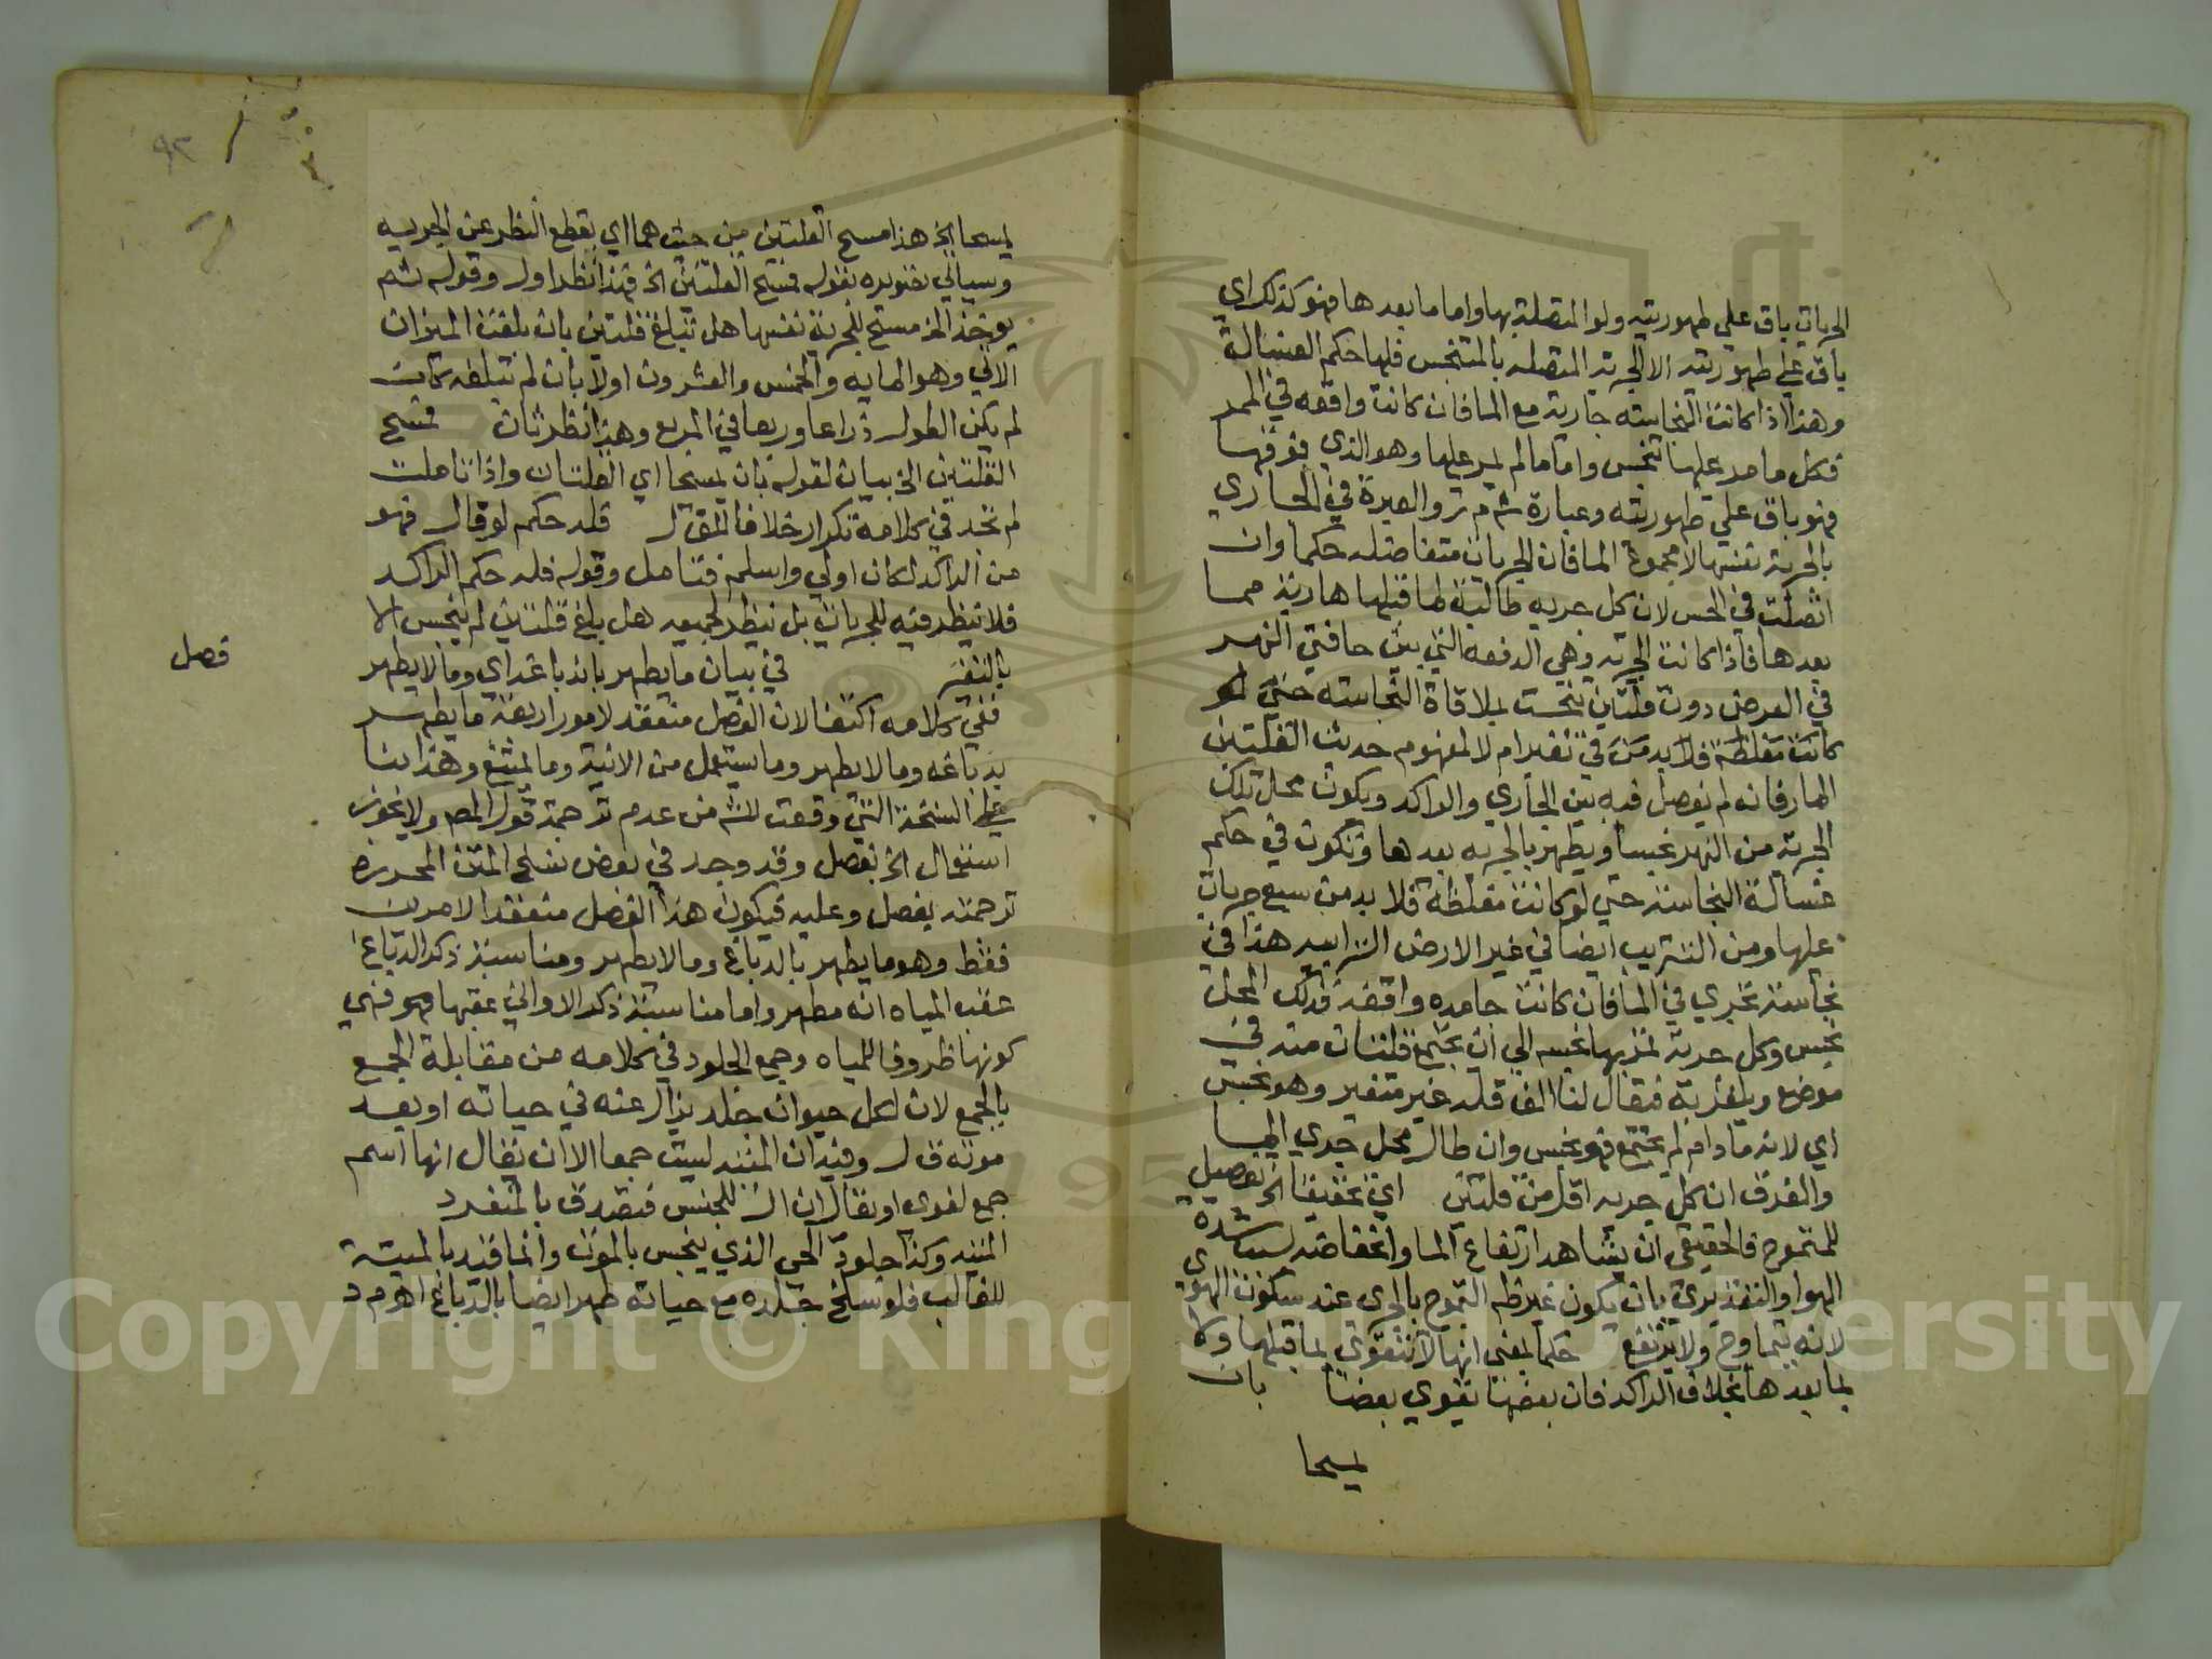 الجريات باق علي طهوريته ولو المتصلة بها واما ما بعدها فهو كذلك اي
باق علي طهوريته الا الجرية المتصله بالمتنجس فلها حكم الغسالة
وهذا اذا كانت النجاسته جارية مع الما فان كانت واقفه في الممر
فكل ما مر عليها تنجس واما ما لم يمر عليها وهو الذي فوقها
فهو باق علي طهوريته وعبارة ش م ر والعبرة في الجاري
بالجرية نفسها لا مجموع الما فان الجريات متفاصله حكما وان
اتصلت في الحس لان كل جريه طالبة لما قبلها هاربة مما
بعدها فاذا كانت الجرية وهي الدفعه التي بين حافتي النهر
في العرض دون قلتين تنجست بملاقاة النجاسته حتي لو
كانت مغلظة فلا بد من في تغير ام لا لمفهوم حديث القلتين
المار فانه لم يفصل فيه بين الجاري والراكد ويكون محل تلك
الجرية من النهر نجسا ويطهر بالجريه بعدها وتكون في حكم
غسالة النجاسة حتي لو كانت مغلظة فلا بد من سبع جريات
عليها ومن التتريب ايضا في غير الارض الترابيه هذا في
نجاسة تجري في الما فان كانت جامده واقفة فذلك المحل
نجس وكل جرية تمر بها نجسه الي ان يجتمع قلتان منه في
موضع ويلغز به فيقال لنا الف قلة غير متغير وهو نجس
اي لانه ما دام لم يجتمع فهو نجس وان طال محل جري الما
والفرق ان كل جريه اقل من قلتين اي تحقيقا الخ تفصيل
للمتموج فالحقيقي ان يشاهد ارتفاع الما وانخفاضه بسبب شدة
الهوا والتقديري بان يكون غير ظهر التموج بالجري عند سكون الهوي
لانه يتماوج ولا يرتفع حكما بمعني انها لا تتقوي بما قبلها ولا
بما بعدها بخلاف الراكد فان بعضها يقوي بعضا بان
يمسحا
يمسحا الخ هذا مسح القلتين من حيث هما اي بقطع النظر عن الجريه
وسياتي تصويره بقوله فتمسح القلتين الخ فهذا نظر اول وقوله ثم
يوخذ الخ مسح للجرية نفسها هل تبلغ قلتين بان بلغت الميزان
الاتي وهو المايه والخمس والعشرون اولا بان لم تبلغه كان
لم يكن الطول ذراعا وربعا في المربع وهذا نظر ثان فتمسح
القلتين الخ بيان لقوله بان يمسحا اي القلتان واذا تاملت
لم تجد في كلامه تكرار خلافا لـ ق ل فله حكم لو قال فهو
من الراكد لكان اولي واسلم فتامل وقوله فله حكم الراكد
فلا ينظر فيه للجريات بل ينظر لجميعه هل بلغ قلتين لم ينجس الا
بالتغير في بيان ما يطهر بالدباغ اي وما لا يطهر
فصل
ففي كلامه اكتفا لان الفصل منعقد لامور اربعة ما يطهر
بدباغه وما لا يطهر وما يستعمل من الانية وما يمتنع وهذا بنا
علي النسخة التي وقعت للش من عدم ترجمة قول المص ولا يجوز
استعمال الخ بفصل وقد وجد في بعض نسخ المتن المحررة
ترجمته بفصل وعليه فيكون هذا الفصل منعقدا لامرين
فقط وهو ما يطهر بالدباغ وما لا يطهر ومناسبة ذكر الدباغ
عقب المياه انه مطهر واما مناسبة ذكر الاواني عقبها فهو في
كونها ظروفا للمياه وجمع الجلود في كلامه من مقابلة الجمع
بالجمع لان لكل حيوان جلد يزال عنه في حياته او بعد
موته ق ل وفيه ان الميتة ليست جمعا الا ان يقال انها اسم
جمع لغوي او يقال ان ال للجنس فتصدق بالمتعدد
الميتة وكذا جلود الحي الذي ينجس بالموت وانما قيد بالميتة
للغالب فلو سلخ جلده مع حياته طهر ايضا بالدباغ اهـ م د